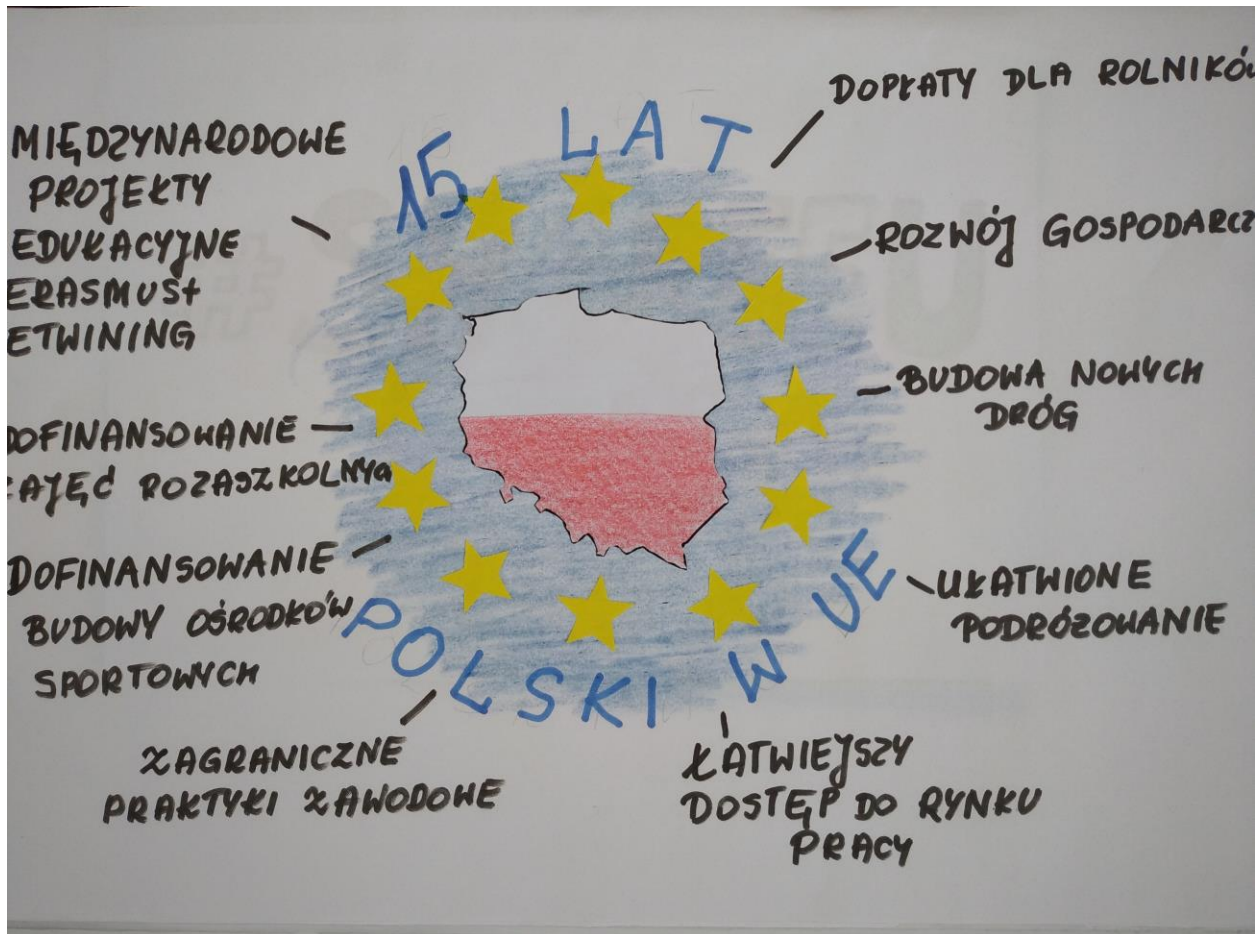 15 LAT
POLSKI W UE
MIĘDZYNARODOWE
PROJEKTY
EDUKACYJNE
ERASMUS+
ETWINING
DOFINANSOWANIE
ZAJĘĆ POZASZKOLNYCH
DOFINANSOWANIE
BUDOWY OŚRODKÓW
SPORTOWYCH
ZAGRANICZNE
PRAKTYKI ZAWODOWE
DOPŁATY DLA ROLNIKÓW
ROZWÓJ GOSPODARCZ
BUDOWA NOWYCH
DRÓG
UŁATWIONE
PODRÓŻOWANIE
ŁATWIEJSZY
DOSTĘP DO RYNKU
PRACY